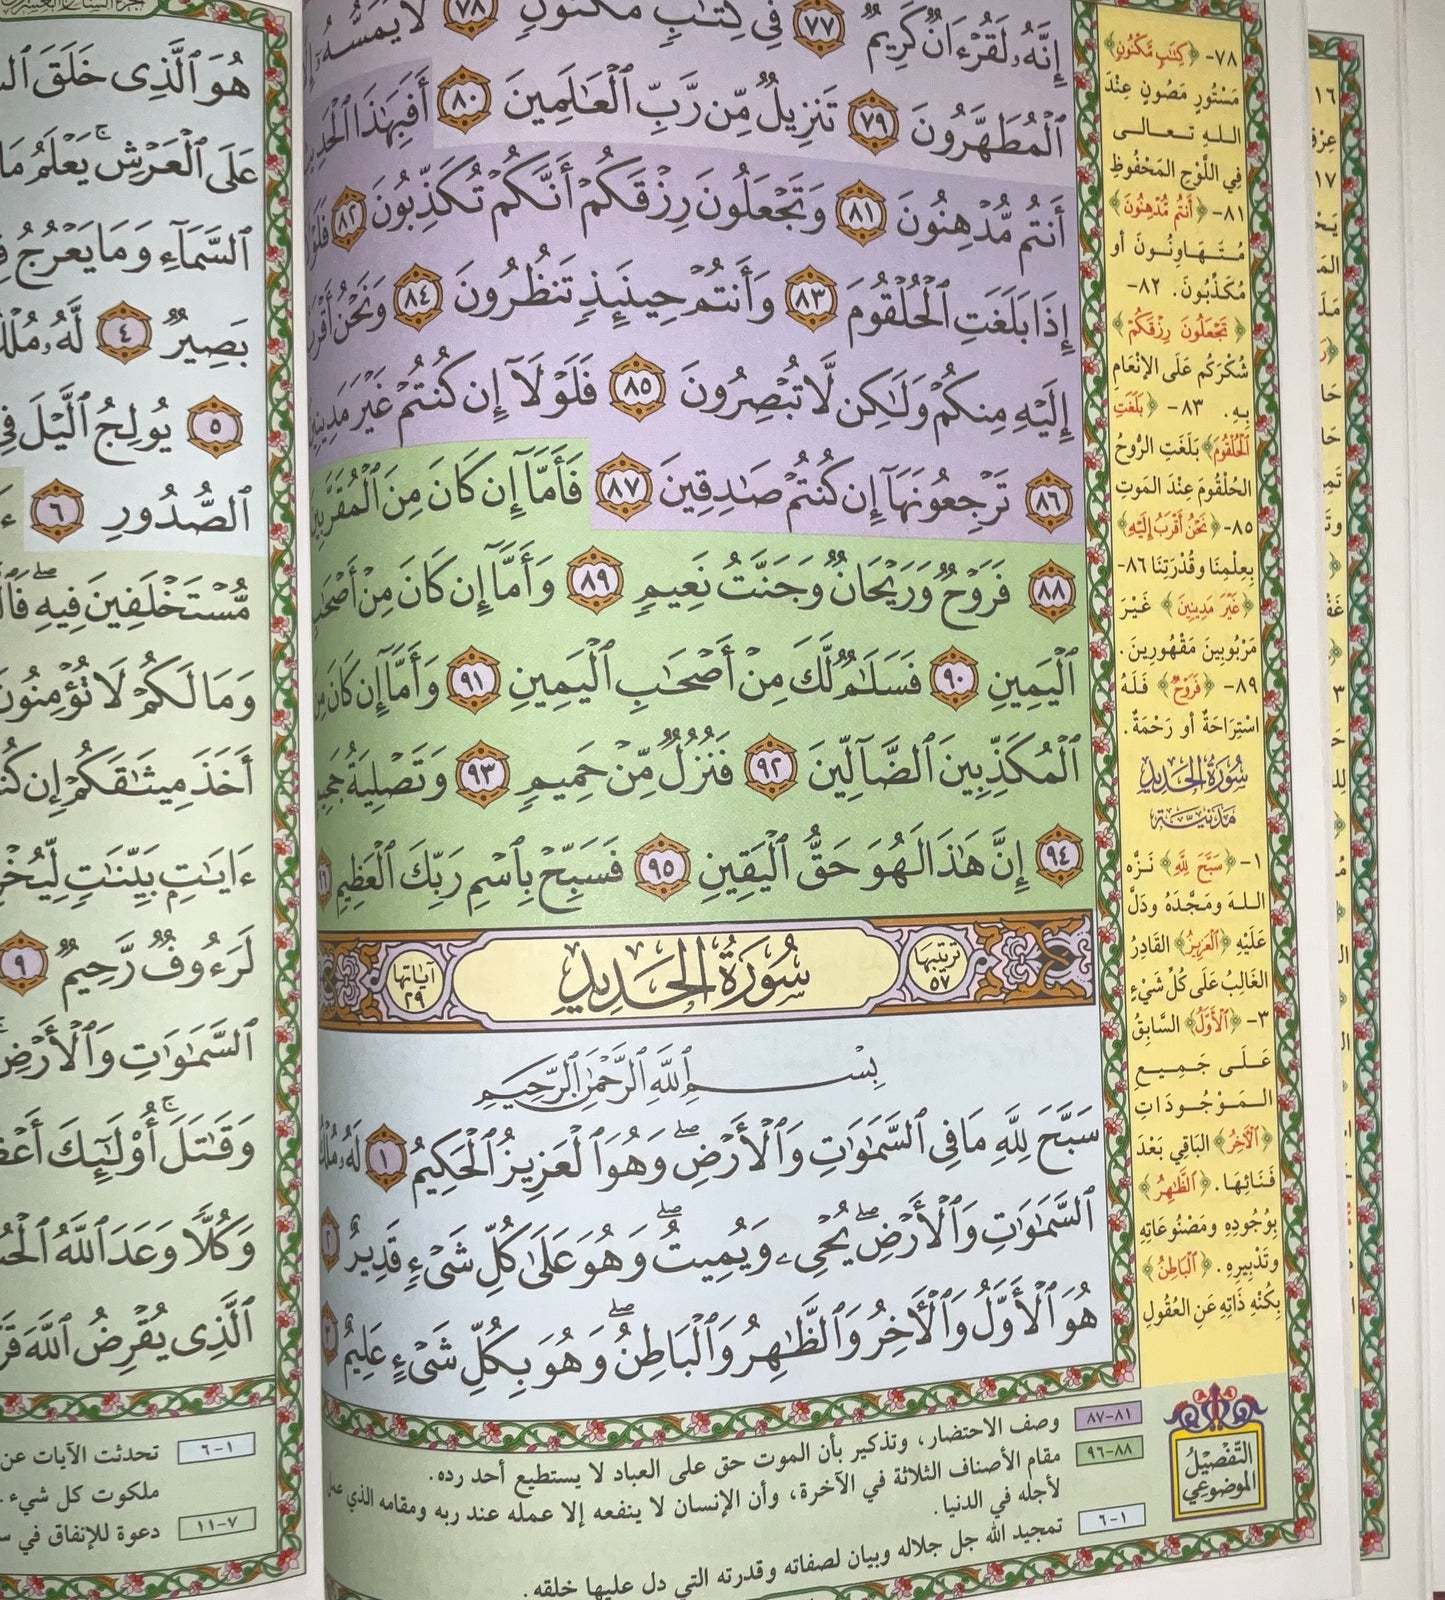 إِنَّهُۥ لَقُرْءَانٌ كَرِيمٌ ٧٧ فِى كِتَٰبٍ مَّكْنُونٍ ٧٨ لَّا يَمَسُّهُۥٓ
ٱلْمُطَهَّرُونَ ٧٩ تَنزِيلٌ مِّن رَّبِّ ٱلْعَٰلَمِينَ ٨٠ أَفَبِهَٰذَا ٱلْحَدِيثِ
أَنتُم مُّدْهِنُونَ ٨١ وَتَجْعَلُونَ رِزْقَكُمْ أَنَّكُمْ تُكَذِّبُونَ ٨٢ فَلَوْلَآ
إِذَا بَلَغَتِ ٱلْحُلْقُومَ ٨٣ وَأَنتُمْ حِينَئِذٍ تَنظُرُونَ ٨٤ وَنَحْنُ أَقْرَبُ
إِلَيْهِ مِنكُمْ وَلَٰكِن لَّا تُبْصِرُونَ ٨٥ فَلَوْلَآ إِن كُنتُمْ غَيْرَ مَدِينِينَ
٨٦ تَرْجِعُونَهَآ إِن كُنتُمْ صَٰدِقِينَ ٨٧ فَأَمَّآ إِن كَانَ مِنَ ٱلْمُقَرَّبِينَ
٨٨ فَرَوْحٌ وَرَيْحَانٌ وَجَنَّتُ نَعِيمٍ ٨٩ وَأَمَّآ إِن كَانَ مِنْ أَصْحَٰبِ
ٱلْيَمِينِ ٩٠ فَسَلَٰمٌ لَّكَ مِنْ أَصْحَٰبِ ٱلْيَمِينِ ٩١ وَأَمَّآ إِن كَانَ مِنَ
ٱلْمُكَذِّبِينَ ٱلضَّآلِّينَ ٩٢ فَنُزُلٌ مِّنْ حَمِيمٍ ٩٣ وَتَصْلِيَةُ جَحِيمٍ
٩٤ إِنَّ هَٰذَا لَهُوَ حَقُّ ٱلْيَقِينِ ٩٥ فَسَبِّحْ بِٱسْمِ رَبِّكَ ٱلْعَظِيمِ ٩٦
ترتيبها ٥٧ سُورَةُ الحَدِيدِ آياتها ٢٩
بِسْمِ ٱللَّهِ ٱلرَّحْمَٰنِ ٱلرَّحِيمِ
سَبَّحَ لِلَّهِ مَا فِى ٱلسَّمَٰوَٰتِ وَٱلْأَرْضِ ۖ وَهُوَ ٱلْعَزِيزُ ٱلْحَكِيمُ ١ لَهُۥ مُلْكُ
ٱلسَّمَٰوَٰتِ وَٱلْأَرْضِ ۖ يُحْىِۦ وَيُمِيتُ ۖ وَهُوَ عَلَىٰ كُلِّ شَىْءٍ قَدِيرٌ ٢
هُوَ ٱلْأَوَّلُ وَٱلْءَاخِرُ وَٱلظَّٰهِرُ وَٱلْبَاطِنُ ۖ وَهُوَ بِكُلِّ شَىْءٍ عَلِيمٌ ٣
٧٨- ﴿كِتَٰبٍ مَّكْنُونٍ﴾
مَسْتُورٍ مَصُونٍ عِنْدَ
اللهِ تـعـالـى
فِي اللَّوْحِ المَحْفُوظِ
٨١- ﴿أَنتُم مُّدْهِنُونَ﴾
مُتَهَاوِنُونَ أو
مُكَذِّبُونَ. ٨٢-
﴿تَجْعَلُونَ رِزْقَكُمْ﴾
شُكْرَكُم عَلَى الإنْعَامِ
بِهِ. ٨٣- ﴿بَلَغَتِ
ٱلْحُلْقُومَ﴾ بَلَغَتِ الرُّوحُ
الحُلْقُومَ عِنْدَ المَوتِ
٨٥- ﴿نَحْنُ أَقْرَبُ إِلَيْهِ﴾
بِعِلْمِنَا وقُدْرَتِنَا ٨٦-
﴿غَيْرَ مَدِينِينَ﴾ غَيْرَ
مَرْبُوبِينَ مَقْهُورِينَ.
٨٩- ﴿فَرَوْحٌ﴾ فَلَهُ
اسْتِرَاحَةٌ أو رَحْمَةٌ.
سُورَةُ الحَدِيدِ
مَدَنِيَّة
١- ﴿سَبَّحَ لِلَّهِ﴾ نَزَّهَ
اللهَ ومَجَّدَهُ ودَلَّ
عَلَيْهِ ﴿ٱلْعَزِيزُ﴾ القَادِرُ
الغَالِبُ عَلَى كُلِّ شَيْءٍ
٣- ﴿ٱلْأَوَّلُ﴾ السَّابِقُ
عَـلَـى جَـمِـيـعِ
الـمَـوْجُـودَاتِ
﴿ٱلْءَاخِرُ﴾ البَاقِي بَعْدَ
فَنَائِهَا. ﴿ٱلظَّٰهِرُ﴾
بِوُجُودِهِ ومَصْنُوعَاتِهِ
وتَدْبِيرِهِ. ﴿ٱلْبَاطِنُ﴾
بِكُنْهِ ذَاتِهِ عَنِ العُقُولِ
التَّفْصِيلُ
الموضوعي
٨١-٨٧ وصف الاحتضار، وتذكير بأن الموت حق على العباد لا يستطيع أحد رده.
٨٨-٩٦ مقام الأصناف الثلاثة في الآخرة، وأن الإنسان لا ينفعه إلا عمله عند ربه ومقامه الذي عمل
لأجله في الدنيا.
١-٦ تمجيد الله جل جلاله وبيان لصفاته وقدرته التي دل عليها خلقه.
هُوَ ٱلَّذِى خَلَقَ
عَلَى ٱلْعَرْشِ ۚ يَعْلَمُ مَا
ٱلسَّمَآءِ وَمَا يَعْرُجُ
بَصِيرٌ ٤ لَّهُۥ مُلْكُ
٥ يُولِجُ ٱلَّيْلَ فِى
ٱلصُّدُورِ ٦
مُّسْتَخْلَفِينَ فِيهِ ۖ
وَمَا لَكُمْ لَا تُؤْمِنُونَ
أَخَذَ مِيثَٰقَكُمْ إِن
ءَايَٰتٍۭ بَيِّنَٰتٍ لِّيُخْرِ
لَرَءُوفٌ رَّحِيمٌ ٩
ٱلسَّمَٰوَٰتِ وَٱلْأَرْضِ ۚ
وَقَٰتَلَ ۚ أُو۟لَٰٓئِكَ أَعْظَ
وَكُلًّا وَعَدَ ٱللَّهُ
ٱلَّذِى يُقْرِضُ ٱللَّهَ
١-٦ تحدثت الآيات عن
ملكوت كل شيء.
٧-١١ دعوة للإنفاق في